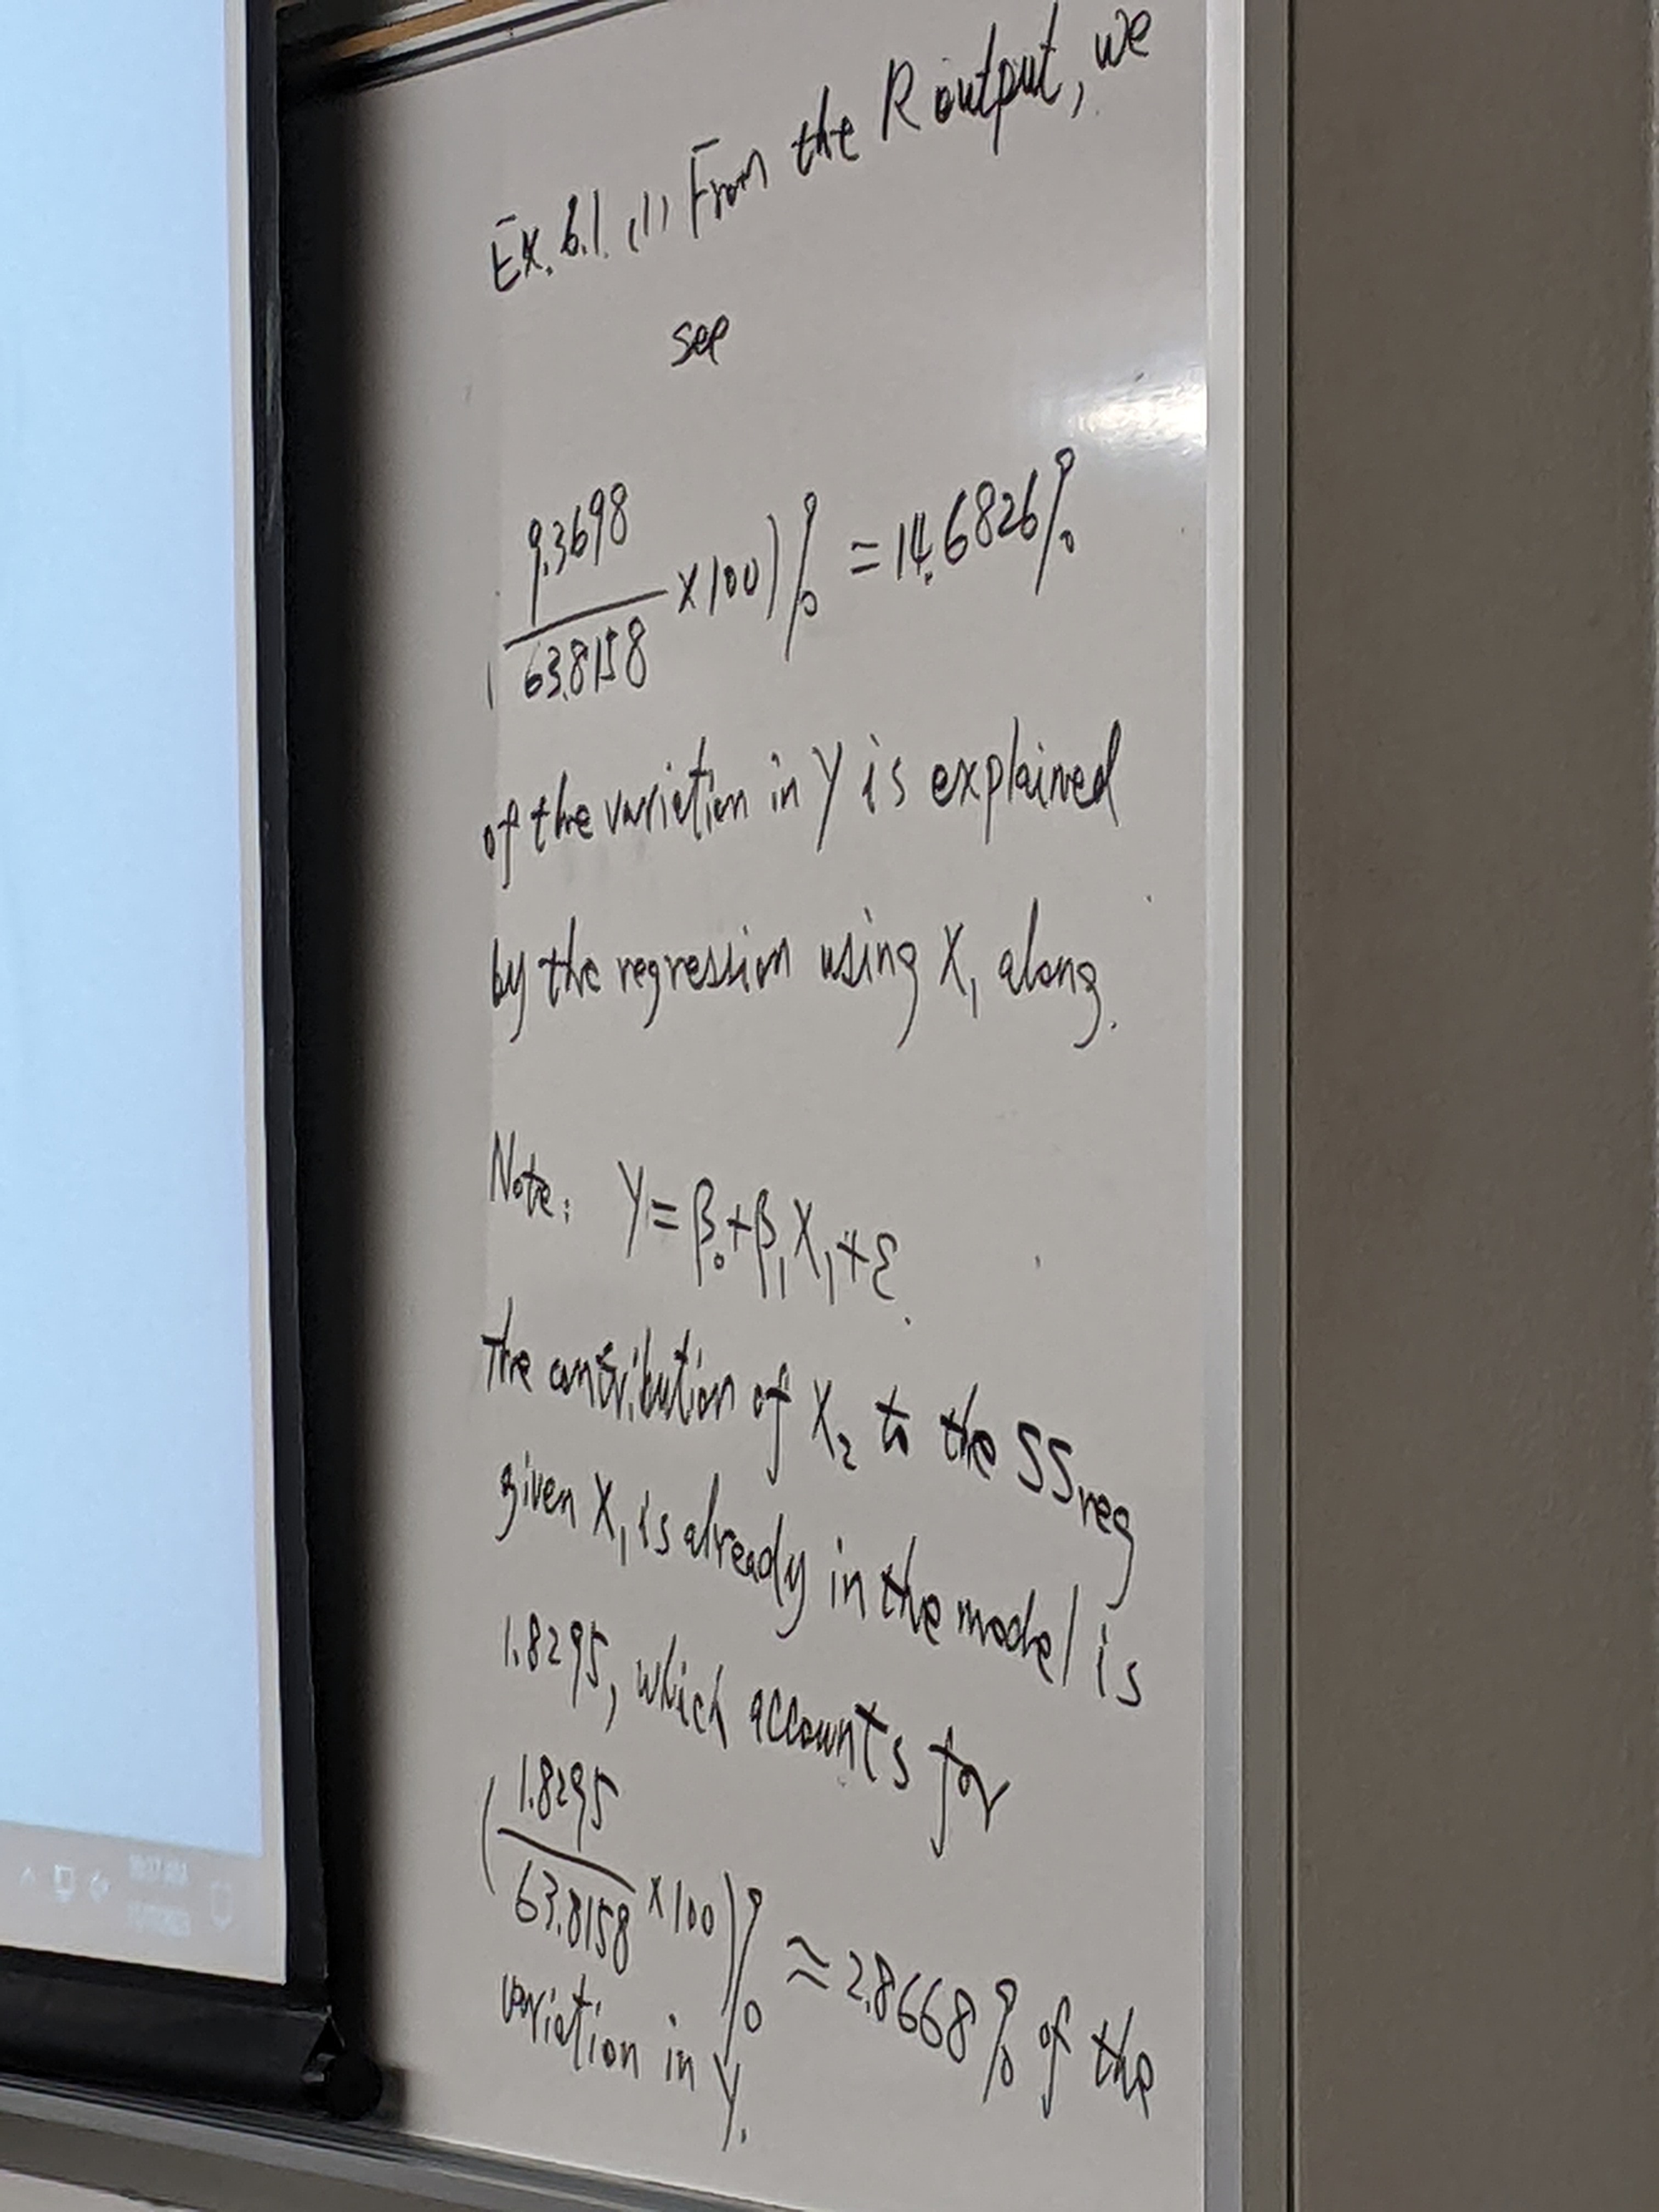 Ex. 6.1. (1) From the R output, we
see
(9.3698/63.8158 ×100)% = 14.6826%
of the variation in Y is explained
by the regression using X₁ along.
Note: Y=β₀+β₁X₁+ε.
The contribution of X₂ to the SSreg
given X₁ is already in the model is
1.8295, which accounts for
(1.8295/63.8158 ×100)% ≈ 2.8668% of the
variation in Y.